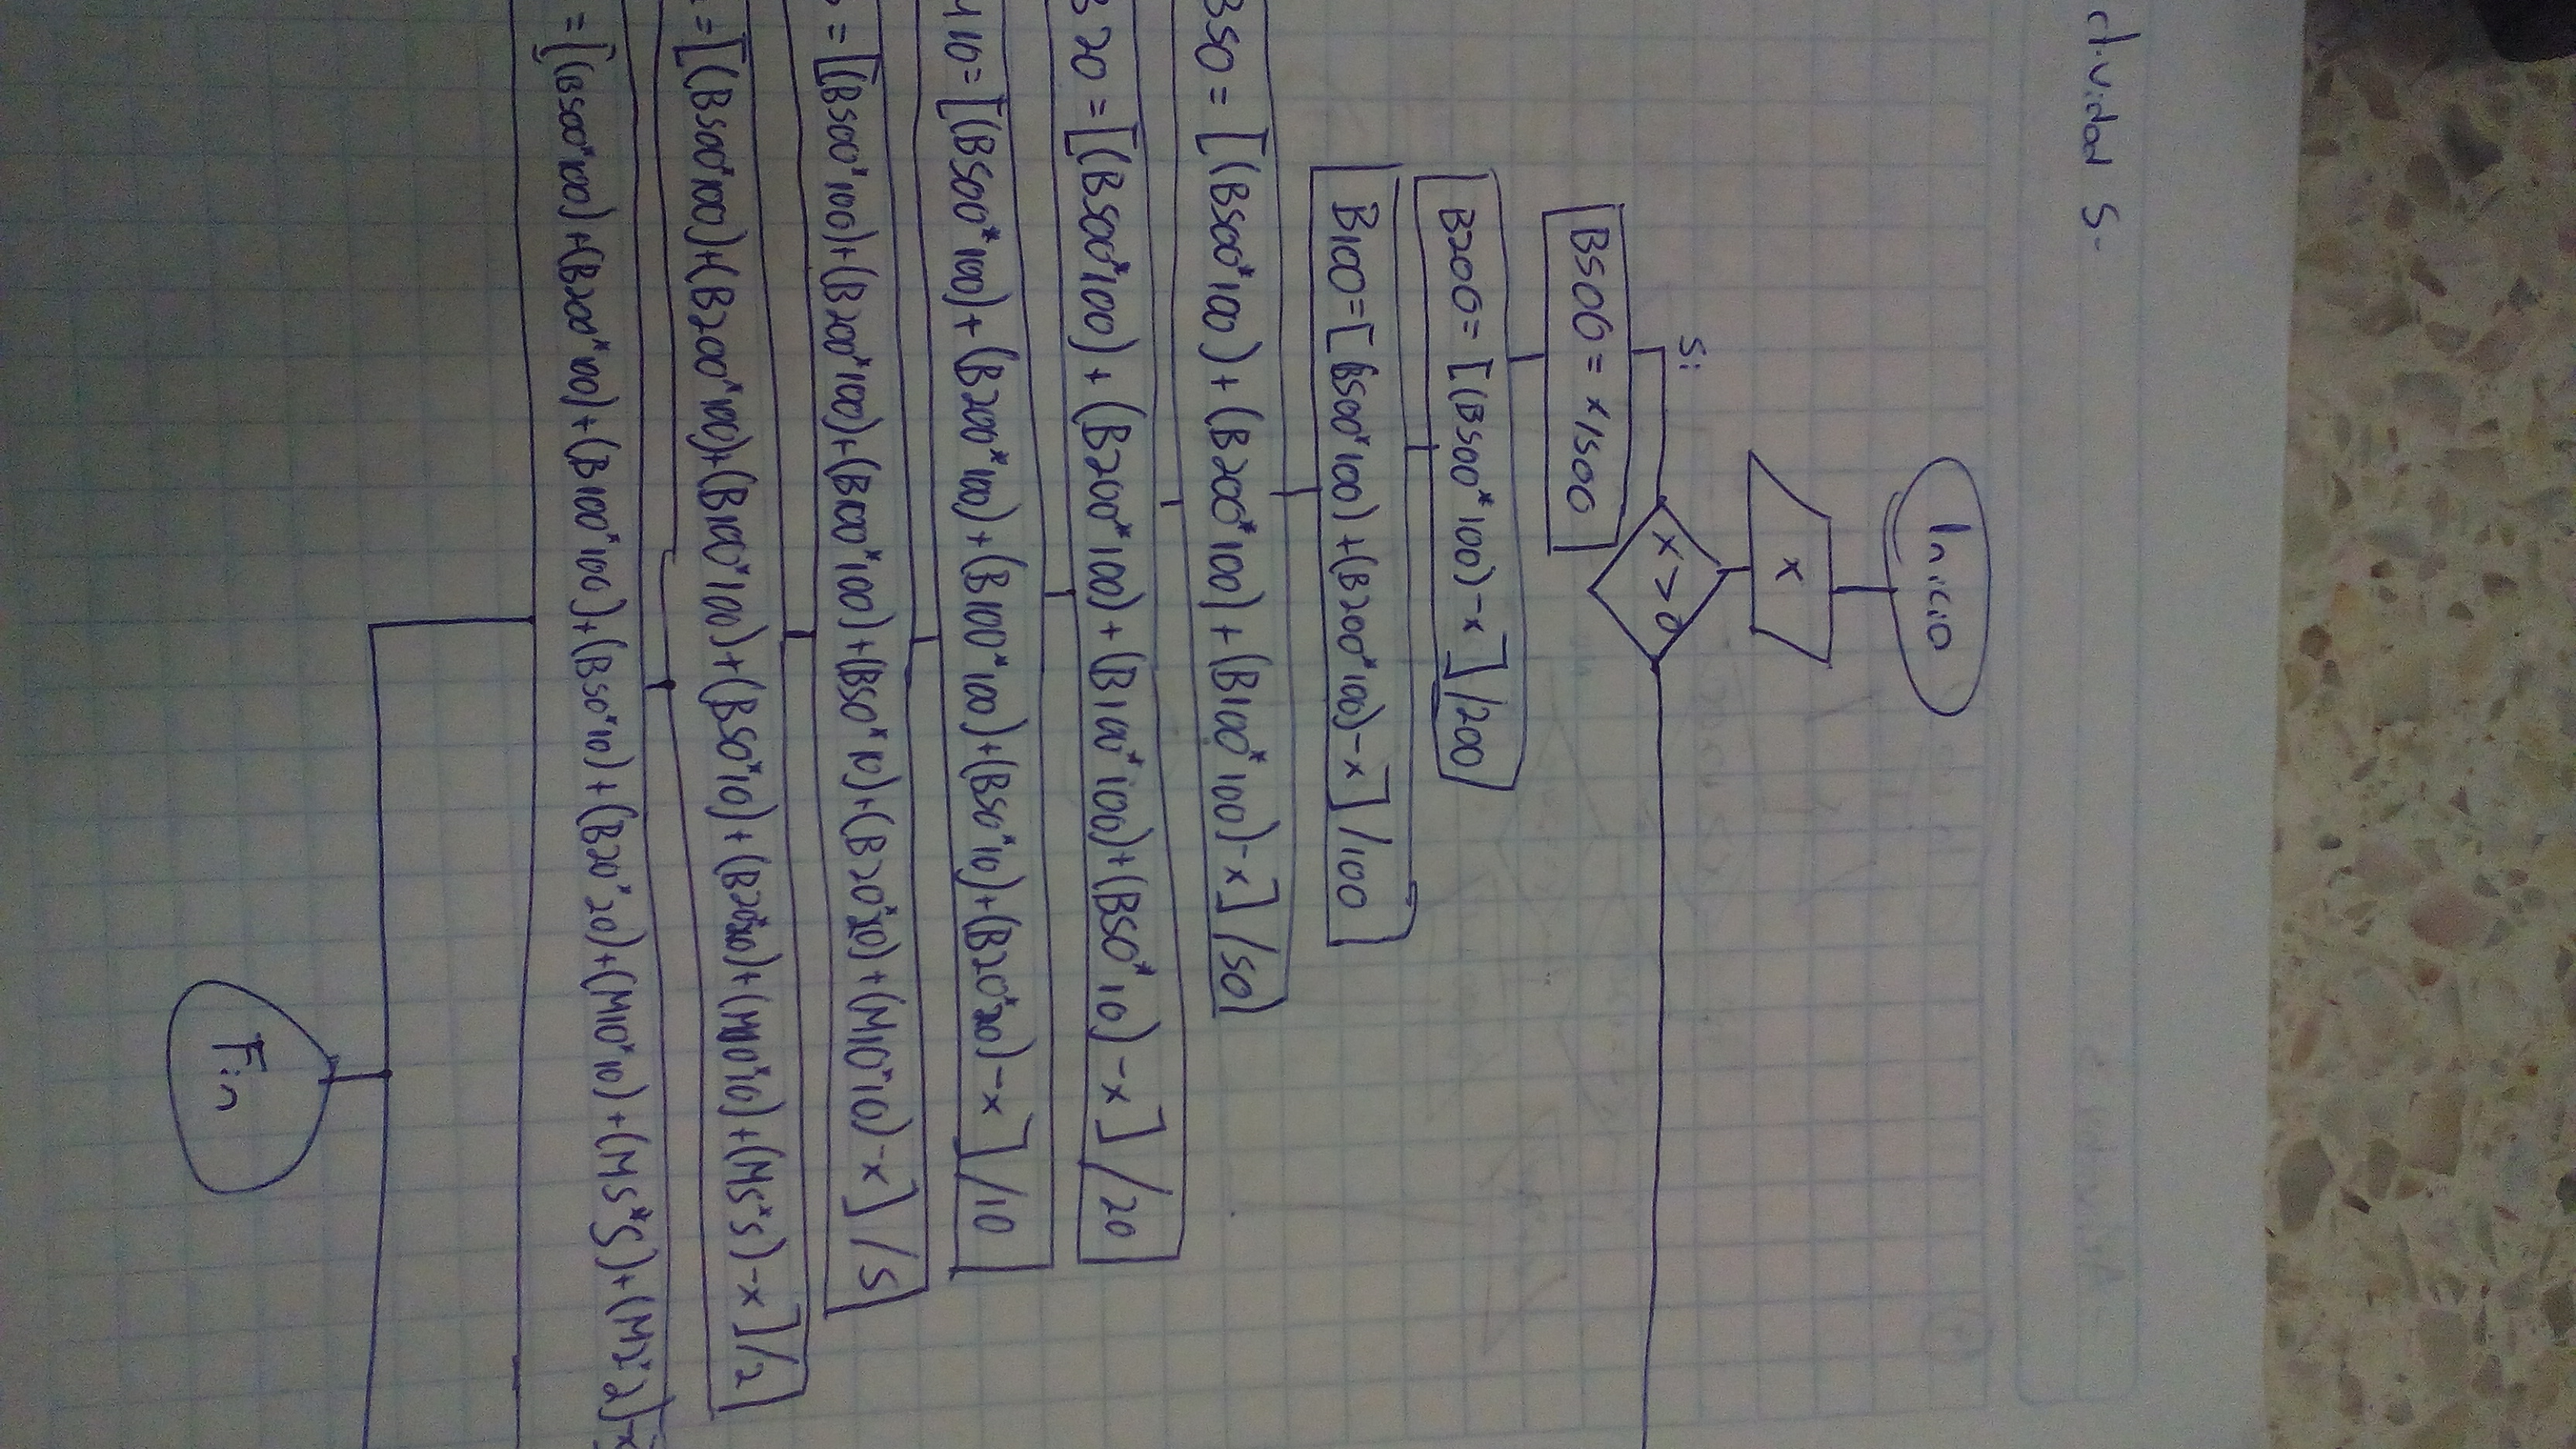 ctividad 5-
Inicio
x
x>0
Si
B500= x/500
B200= [(B500*100)-x]/200
B100=[(B500*100)+(B200*100)-x]/100
B50=[(B500*100)+(B200*100)+(B100*100)-x]/50
B20=[(B500*100)+(B200*100)+(B100*100)+(B50*10)-x]/20
M10=[(B500*100)+(B200*100)+(B100*100)+(B50*10)+(B20*20)-x]/10
=[(B500*100)+(B200*100)+(B100*100)+(B50*10)+(B20*20)+(M10*10)-x]/5
=[(B500*100)+(B200*100)+(B100*100)+(B50*10)+(B20*20)+(M10*10)+(M5*5)-x]/2
=[(B500*100)+(B200*100)+(B100*100)+(B50*10)+(B20*20)+(M10*10)+(M5*5)+(M2*2)-x
Fin